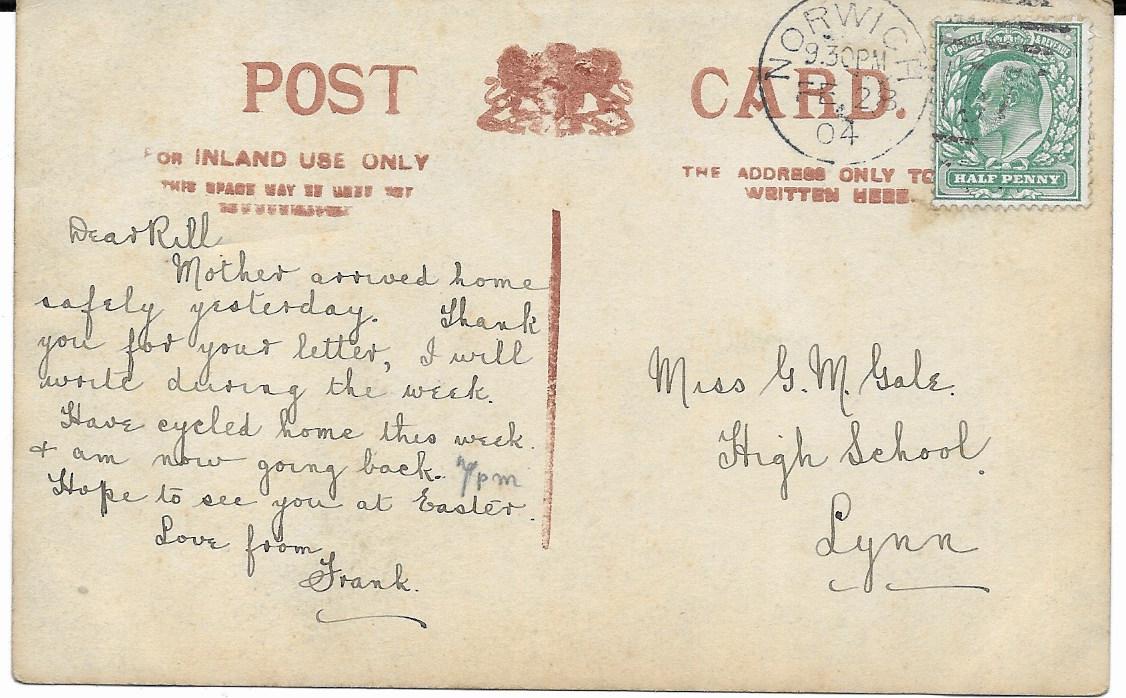 POST CARD.
FOR INLAND USE ONLY
THIS SPACE MAY BE USED
THE ADDRESS ONLY TO
WRITTEN HERE.
NORWICH
9.30PM
FE 28
04
POSTAGE & REVENUE
HALF PENNY
Dear Rill
Mother arrived home
safely yesterday. Thank
you for your letter, I will
write during the week.
Have cycled home this week.
& am now going back. 7pm
Hope to see you at Easter.
Love from
Frank.
Miss G. M. Gale.
High School.
Lynn